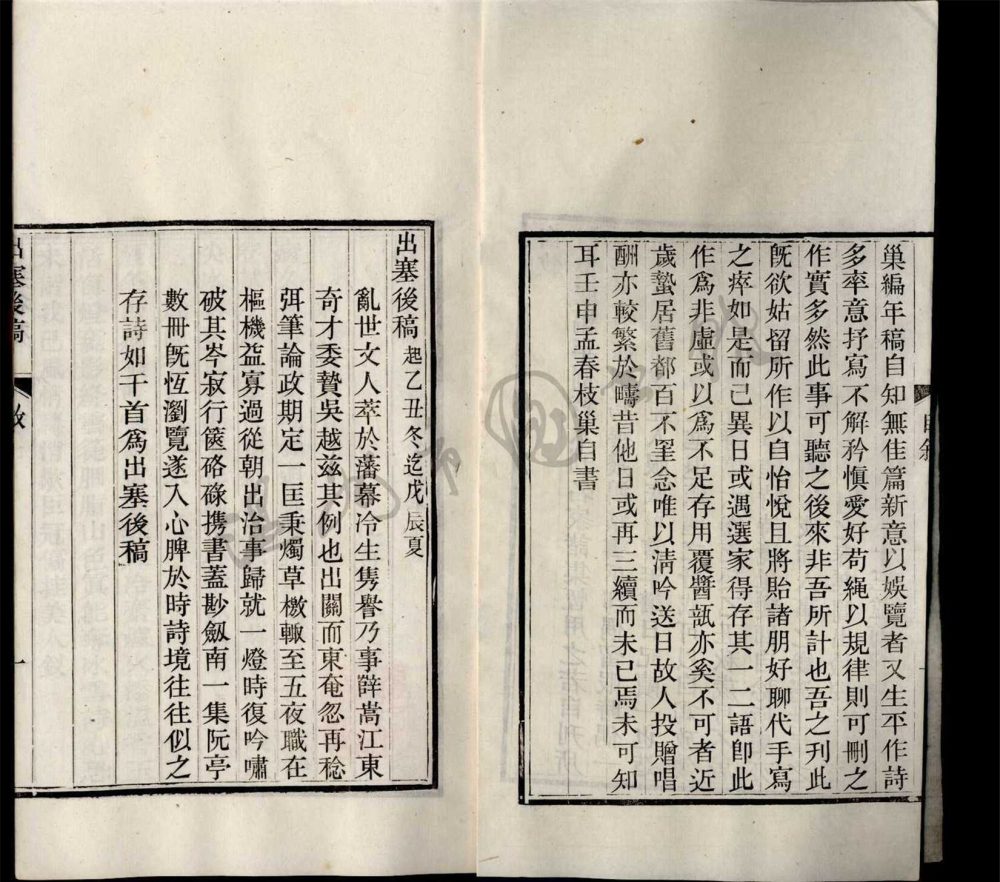 巢編年稿自知無佳篇新意以娛覽者又生平作詩
多率意抒寫不解矜慎愛好苟繩以規律則可刪之
作實多然此事可聽之後來非吾所計也吾之刊此
旣欲姑留所作以自怡悅且將貽諸朋好聊代手寫
之瘁如是而已異日或遇選家得存其一二語卽此
作爲非虛或以爲不足存用覆醬瓿亦奚不可者近
歲蟄居舊都百不罣念唯以淸吟送日故人投贈唱
酬亦較繁於疇昔他日或再三續而未已焉未可知
耳壬申孟春枝巢自書
自敘
出塞後稿 起乙丑冬迄戊辰夏
亂世文人萃於藩幕冷生雋譽乃事薛嵩江東
奇才委贄吳越茲其例也出關而東奄忽再稔
弭筆論政期定一匡秉燭草檄輒至五夜職在
樞機益寡過從朝出治事歸就一燈時復吟嘯
破其岑寂行篋硌碌携書蓋尠劒南一集阮亭
數冊旣恆瀏覽遂入心脾於時詩境往往似之
存詩如干首爲出塞後稿
出塞後稿
一